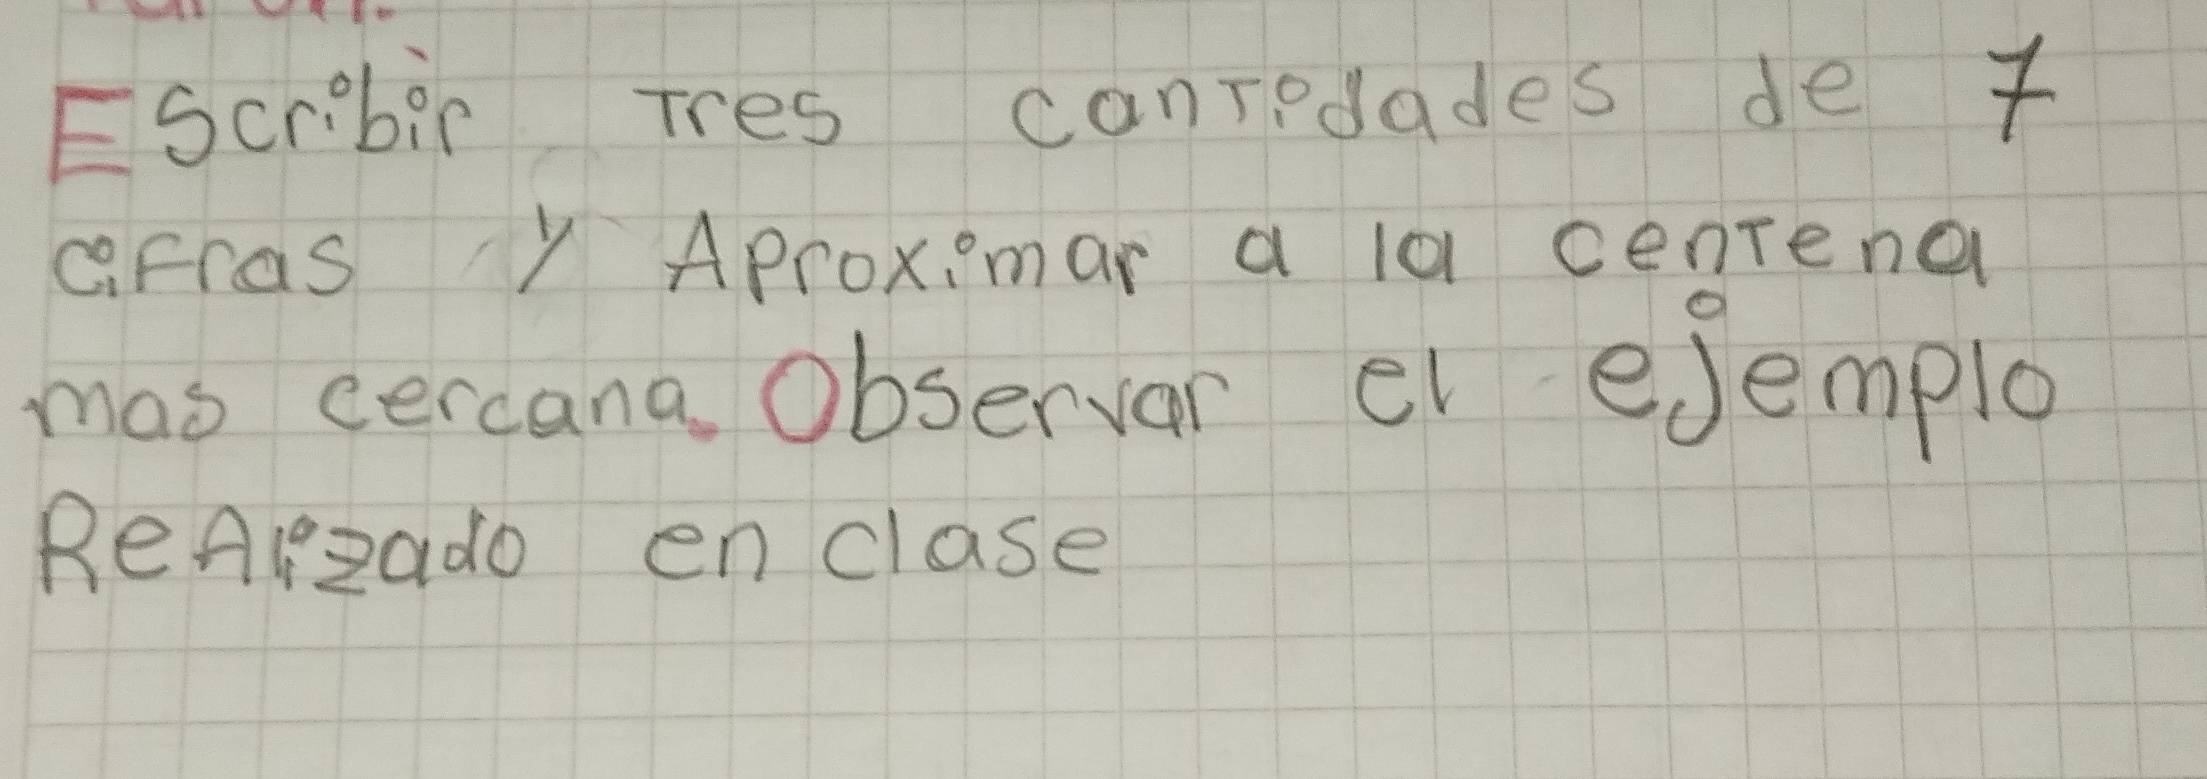 Escribir Tres cantidades de 7
cifras y Aproximar a la centena
mas cercana. Observar el ejemplo
ReAlizado en clase